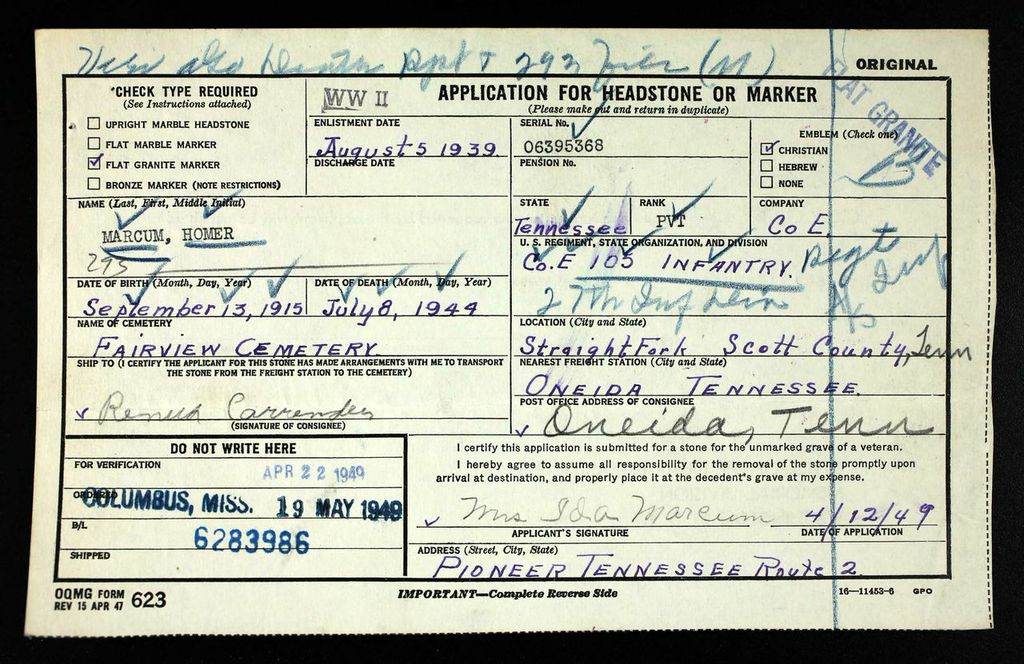 ORIGINAL
*CHECK TYPE REQUIRED
(See Instructions attached)
UPRIGHT MARBLE HEADSTONE
FLAT MARBLE MARKER
FLAT GRANITE MARKER
BRONZE MARKER (NOTE RESTRICTIONS)
WW II
APPLICATION FOR HEADSTONE OR MARKER
(Please make out and return in duplicate)
ENLISTMENT DATE
August 5 1939
DISCHARGE DATE
SERIAL No.
06395368
PENSION No.
EMBLEM (Check one)
CHRISTIAN
HEBREW
NONE
FLAT GRANITE
NAME (Last, First, Middle Initial)
MARCUM, HOMER
293
STATE
Tennessee
RANK
PVT
COMPANY
Co E.
U. S. REGIMENT, STATE ORGANIZATION, AND DIVISION
Co. E 105 INFANTRY.
27th Inf Divn
DATE OF BIRTH (Month, Day, Year)
September 13, 1915
DATE OF DEATH (Month, Day, Year)
July 8, 1944
NAME OF CEMETERY
FAIRVIEW CEMETERY
LOCATION (City and State)
Straight Fork Scott County, Tenn
SHIP TO (I CERTIFY THE APPLICANT FOR THIS STONE HAS MADE ARRANGEMENTS WITH ME TO TRANSPORT
THE STONE FROM THE FREIGHT STATION TO THE CEMETERY)
(SIGNATURE OF CONSIGNEE)
NEAREST FREIGHT STATION (City and State)
ONEIDA TENNESSEE.
POST OFFICE ADDRESS OF CONSIGNEE
Oneida, Tenn
DO NOT WRITE HERE
FOR VERIFICATION
APR 22 1949
ORDERED
COLUMBUS, MISS. 19 MAY 1949
B/L
6283986
SHIPPED
I certify this application is submitted for a stone for the unmarked grave of a veteran.
I hereby agree to assume all responsibility for the removal of the stone promptly upon
arrival at destination, and properly place it at the decedent's grave at my expense.
Mrs Ida Marcum 4/12/49
APPLICANT'S SIGNATURE DATE OF APPLICATION
ADDRESS (Street, City, State)
PIONEER TENNESSEE Route 2
OQMG FORM
REV 15 APR 47 623
IMPORTANT—Complete Reverse Side
16—11453-6 GPO